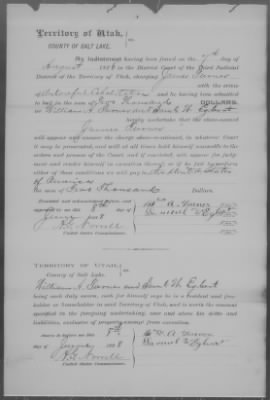 Territory of Utah,
COUNTY OF SALT LAKE.
An Indictment having been found on the 7th day of
August 188 in the District Court of the Third Judicial
District of the Territory of Utah, charging James Turner
with the crime
of Unlawful Cohabitation and he having been admitted
to bail in the sum of Thousand DOLLARS,
We William A. Turner and Saml W. Egbert
hereby undertake that the above-named
James Turner
will appear and answer the charge above-mentioned, in whatever Court
it may be prosecuted, and will at all times hold himself amenable to the
orders and process of the Court, and if convicted, will appear for judg-
ment and render himself in execution thereof; or if he fail to perform
either of these conditions we will pay to the United States
of America
the sum of Thousand Dollars.
Executed and acknowledged before, and
approved by me this 8th Wm A. Turner
day of 188 Samuel W Egbert
H.G. Norrell
United States Commissioner.
TERRITORY OF UTAH,
County of Salt Lake.
William A. Turner and Saml W. Egbert
being each duly sworn, each for himself says he is a resident and free-
holder or householder in said Territory of Utah, and is worth the amount
specified in the foregoing undertaking, over and above his debts and
liabilities, exclusive of property exempt from execution.
Sworn to before me this 8th Wm A. Turner
day of 188 Samuel W Egbert
H.G. Norrell
United States Commissioner.